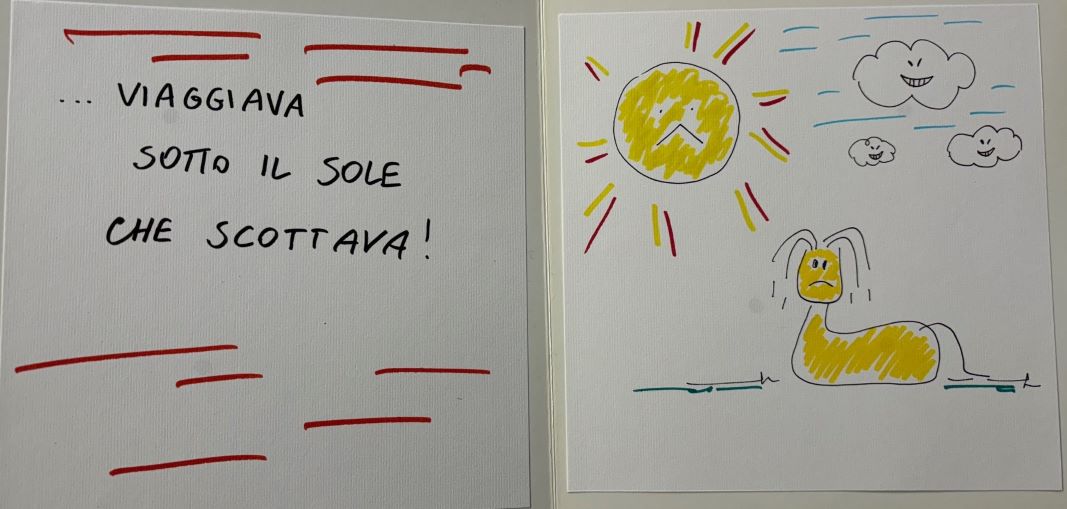 ... VIAGGIAVA
SOTTO IL SOLE
CHE SCOTTAVA!